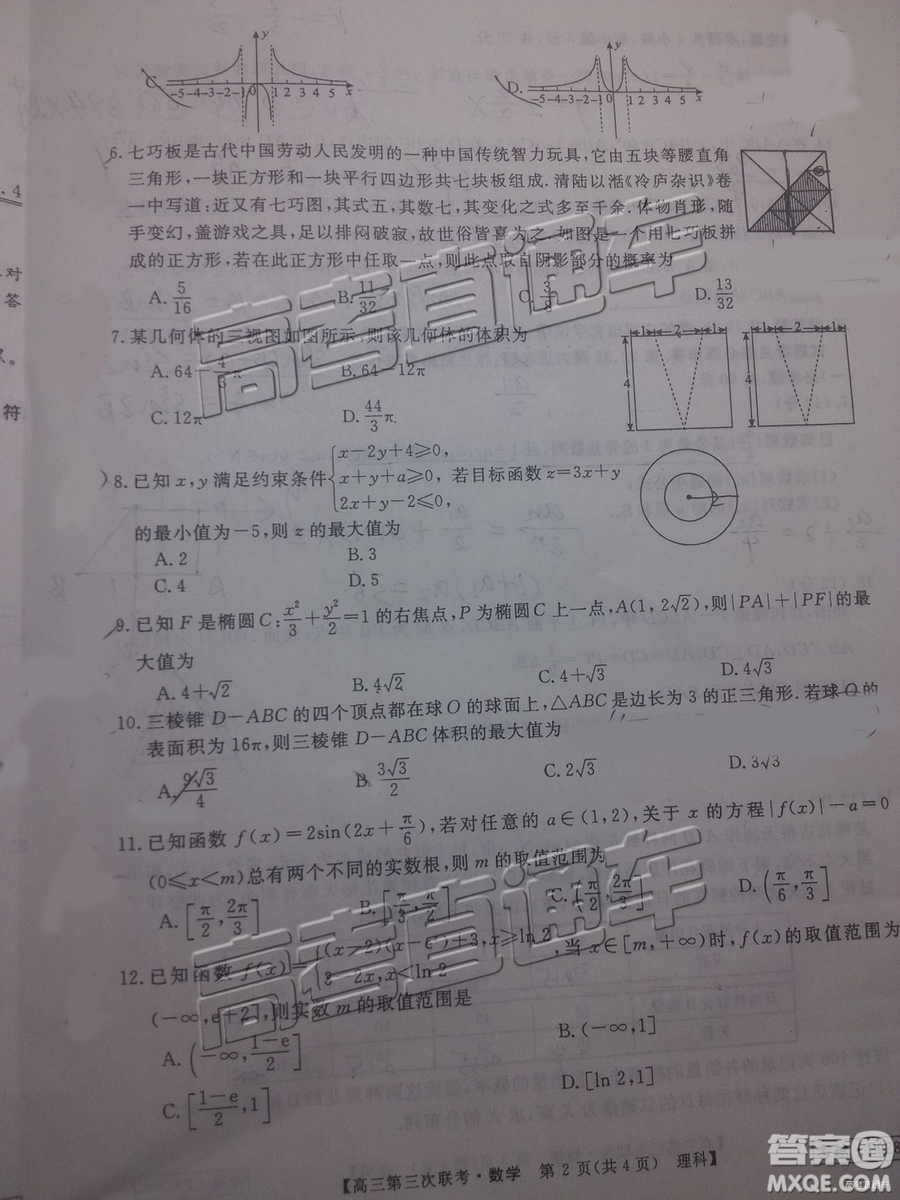 y
C.
-5-4-3-2-1 0 1 2 3 4 5 x
y
D.
-5-4-3-2-1 0 1 2 3 4 5 x
6. 七巧板是古代中国劳动人民发明的一种中国传统智力玩具,它由五块等腰直角
三角形,一块正方形和一块平行四边形共七块板组成.清陆以湉《冷庐杂识》卷
一中写道:近又有七巧图,其式五,其数七,其变化之式多至千余.体物肖形,随
手变幻,盖游戏之具,足以排闷破寂,故世俗皆喜为之.如图是一个用七巧板拼
成的正方形,若在此正方形中任取一点,则此点取自阴影部分的概率为
A. 5/16 B. 11/32 C. 3/8 D. 13/32
7. 某几何体的三视图如图所示,则该几何体的体积为
A. 64-4/3π B. 64-12π
C. 12π D. 44/3π
1 2 1 1 2 1
4 4
8. 已知 x,y 满足约束条件{x-2y+4≥0, x+y+a≥0, 2x+y-2≤0, 若目标函数 z=3x+y
的最小值为-5,则 z 的最大值为
A. 2 B. 3
C. 4 D. 5
9. 已知 F 是椭圆 C: x²/3+y²/2=1 的右焦点,P 为椭圆 C 上一点,A(1,2√2),则|PA|+|PF|的最
大值为
A. 4+√2 B. 4√2 C. 4+√3 D. 4√3
10. 三棱锥 D-ABC 的四个顶点都在球 O 的球面上,△ABC 是边长为 3 的正三角形.若球 O 的
表面积为 16π,则三棱锥 D-ABC 体积的最大值为
A. 9√3/4 B. 3√3/2 C. 2√3 D. 3√3
11. 已知函数 f(x)=2sin(2x+π/6),若对任意的 a∈(1,2),关于 x 的方程|f(x)|-a=0
(0≤x<m)总有两个不同的实数根,则 m 的取值范围为
A. [π/2,2π/3] B. [π/3,π/2] C. [π/2,2π/3] D. (π/6,π/3]
12. 已知函数 f(x)={(x-2)(x-e)+3,x≥ln 2 3-2x,x<ln 2 ,当 x∈[m,+∞)时,f(x)的取值范围为
(-∞,e+2],则实数 m 的取值范围是
A. (-∞,1-e/2] B. (-∞,1]
C. [1-e/2,1] D. [ln 2,1]
【高三第三次联考·数学 第 2 页(共 4 页) 理科】
高考直通车
高考直通车
答案卷
MXQE.COM